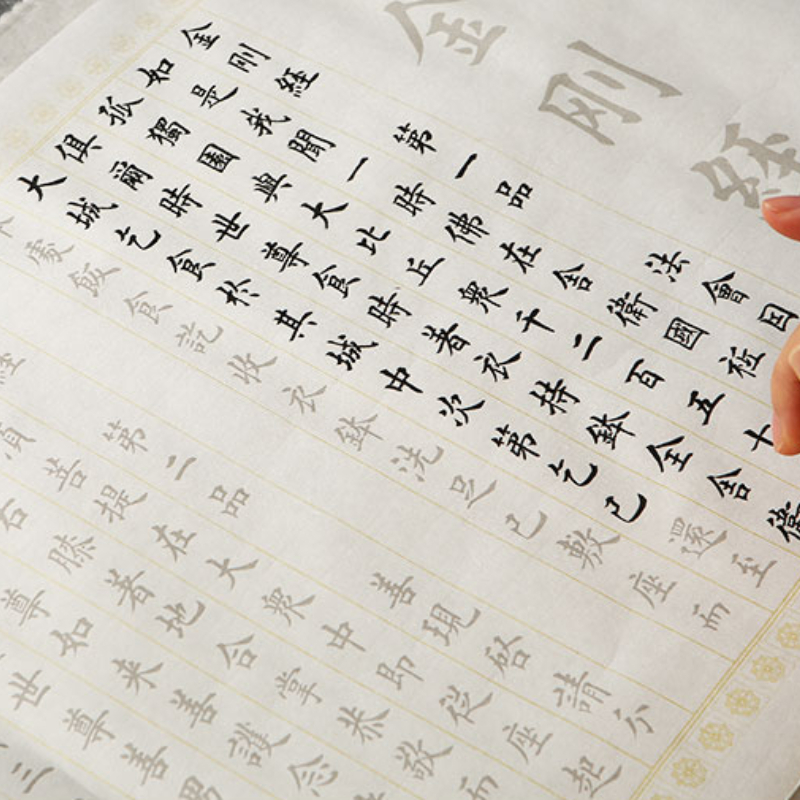 金剛
金剛経 第一品 法會因
如是我聞一時佛在舍衛國祇
孤獨園與大比丘衆千二百五十
俱爾時世尊食時著衣持鉢全舍衛
大城乞食於其城中次第乞已還至
本處飯食訖收衣鉢洗足已敷座而
経 第二品 善現啓請分
須菩提在大衆中即從座起
右膝著地合掌恭敬而
尊如来善護念
世尊善男
三